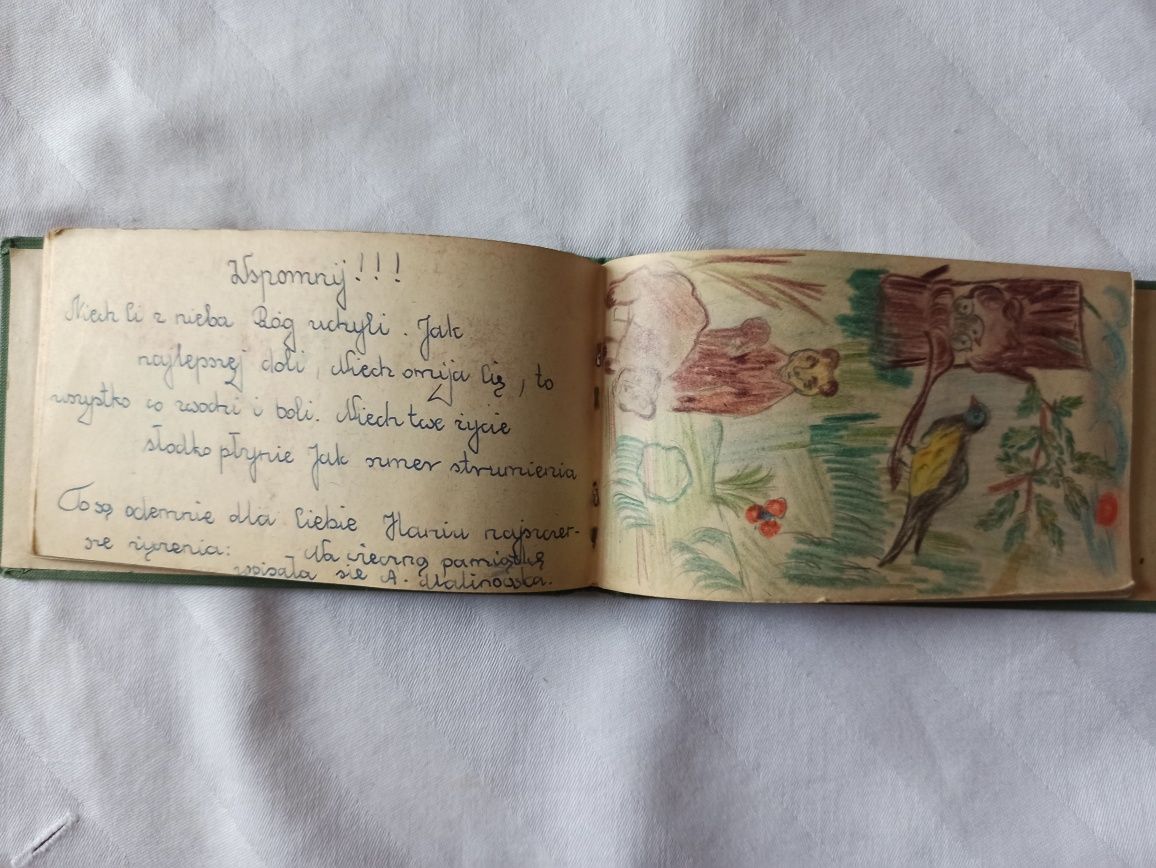 Wspomnij!!!
Niech Ci z nieba Bóg uchyli. Jak
najlepszej doli, Niech omija Cię, to
wszystko co szkodzi i boli. Niech twe życie
słodko płynie Jak szmer strumienia
To są odemnie dla Ciebie Haniu najszczer-
sze życzenia: Na wieczną pamiątkę
wpisała się A. Malinowska.